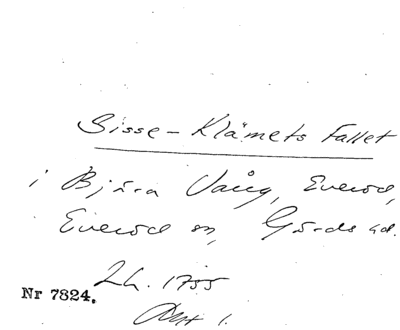 Sisse-Klämets Fallet
i Bjära Vång, Everöd,
Everöd sn, Gärds hd.
Lh. 1755
Nr 7824.
Akt 1.